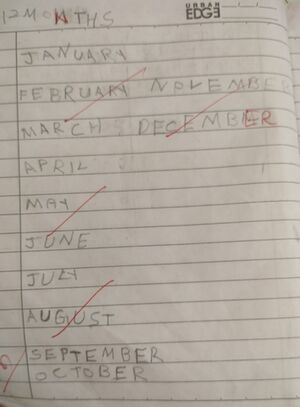 12 MONTHS
URBAN
EDGE
JANUARY
FEBRUARY NOVEMBER
MARCH DECEMBER
APRIL
MAY
JUNE
JULY
AUGUST
SEPTEMBER
OCTOBER